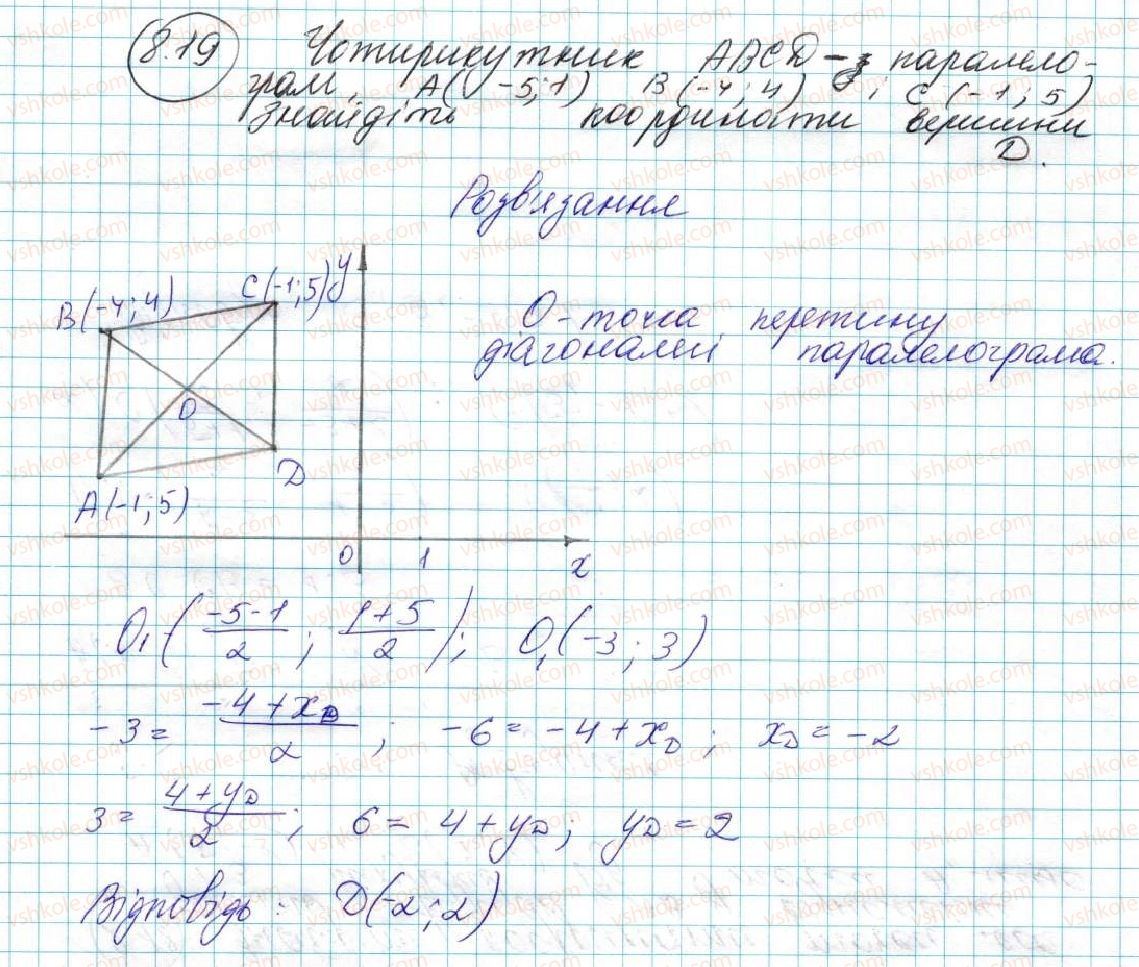 8.19 Чотирикутник ABCD - паралело-
грам, A(-5;1) B(-4;4); C(-1;5)
Знайдіть координати вершини
D.
Розв'язання
B(-4;4) C(-1;5) y
O - точка перетину
діагоналей паралелограма.
O
D
A(-1;5)
0 1 x
O₁(\frac{-5-1}{2}; \frac{1+5}{2}); O₁(-3;3)
-3 = \frac{-4+x_D}{2}; -6 = -4+x_D; x_D = -2
3 = \frac{4+y_D}{2}; 6 = 4+y_D; y_D = 2
Відповідь: D(-2;2)
vshkole.com